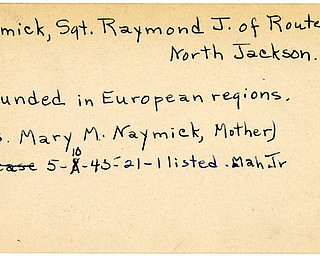 mick, Sgt. Raymond J. of Route
North Jackson.
unded in European regions.
s. Mary M. Naymick, Mother)
ease 5-10-45-21-1 listed. Mah Jr